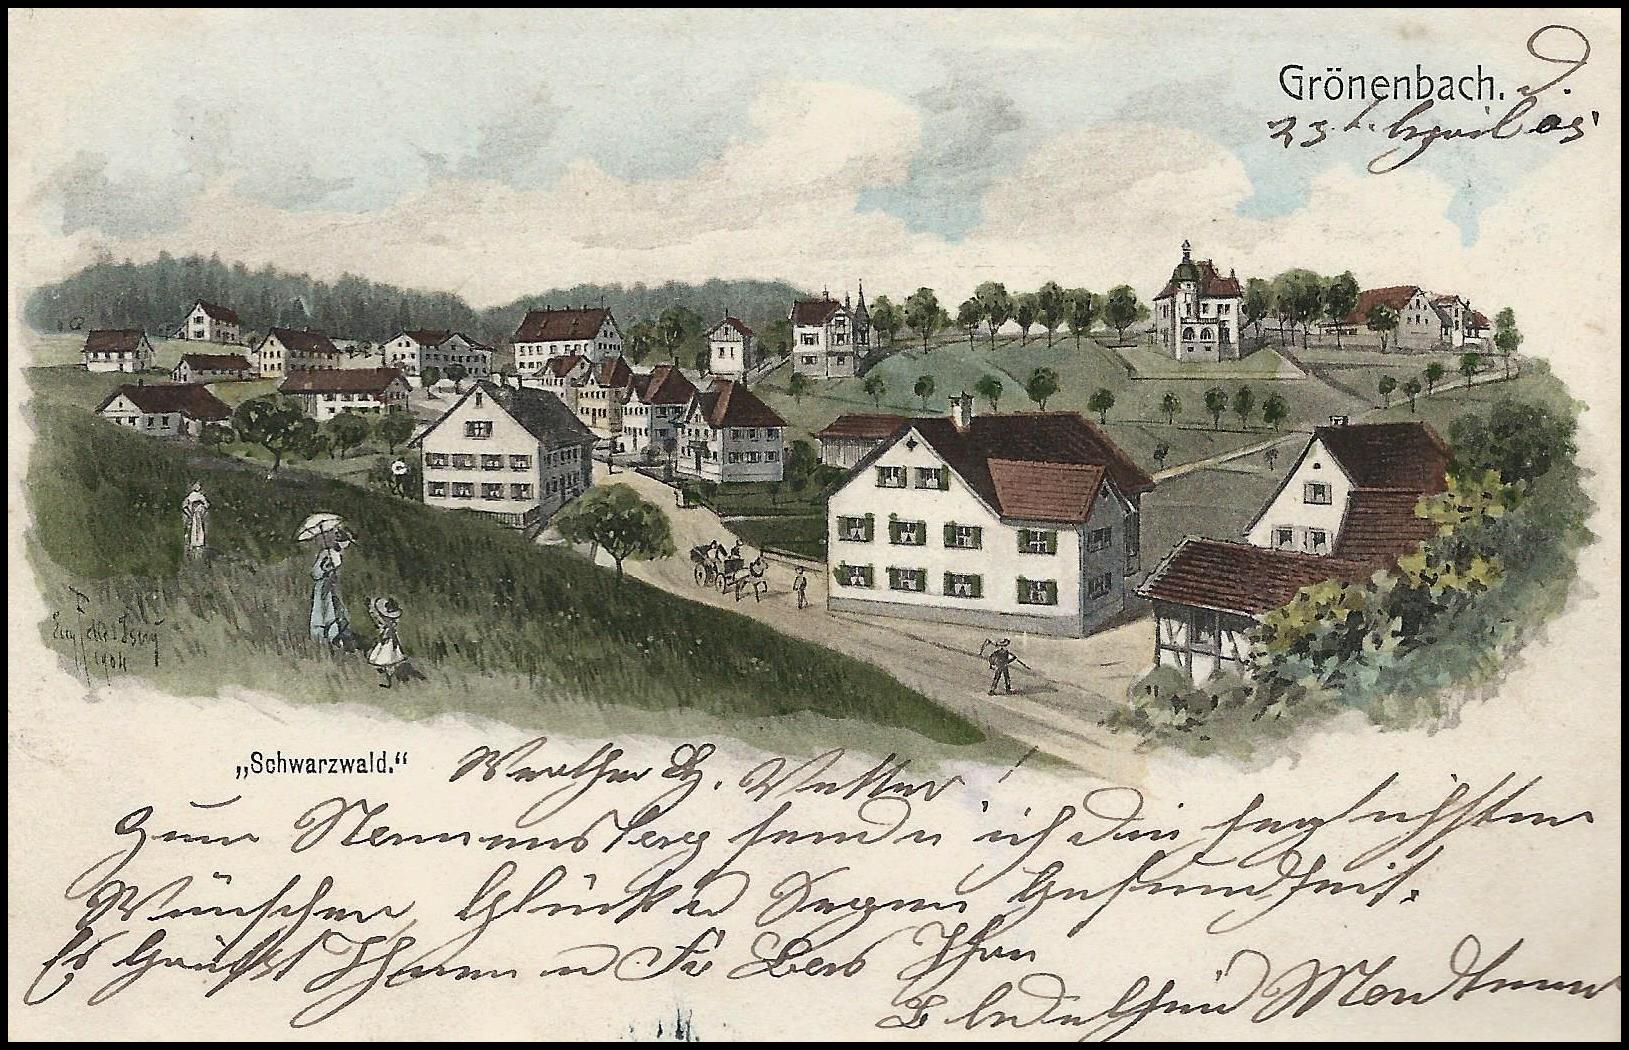 Grönenbach. d.
23. April 05
Eug. Felle Isny
1904
„Schwarzwald.“
Werther H. Vetter!
Zum Namens sende ich die herzlichsten
Wünsche, Glück u Segen Gesundheit.
Es Grüßt Ihnen u Fr Ihre